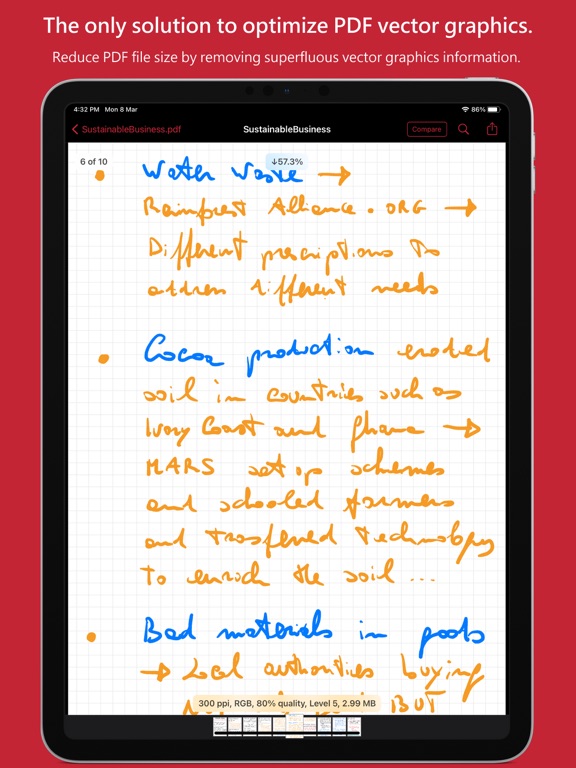 The only solution to optimize PDF vector graphics.
Reduce PDF file size by removing superfluous vector graphics information.
4:32 PM Mon 8 Mar 86%
SustainableBusiness.pdf SustainableBusiness Compare
6 of 10 ↓57.3%
• Water Waste →
Rainforest Alliance.ORG →
Different prescriptions to
address different needs
• Cocoa production eroded
soil in countries such as
Ivory Coast and Ghana →
MARS set up schemes
and schooled farmers
and trasfered technology
to enrich the soil ...
• Bad materials in pools
→ Local authorities buying
BUT
300 ppi, RGB, 80% quality, Level 5, 2.99 MB